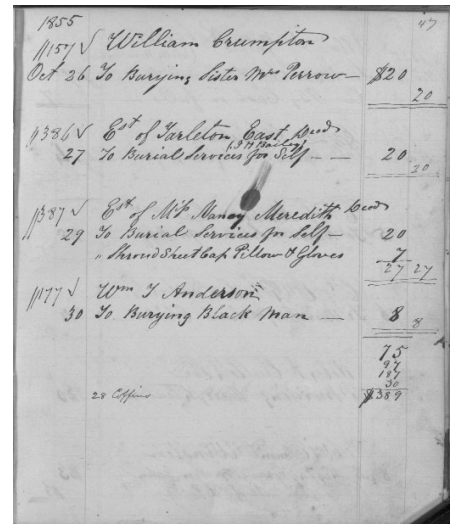 1855 47
1157 √ William Crumpton
Oct 26 To Burying Sister Mrs Perrow — $20
20
1386 √ Est of Tarleton East Decd
(J H Bailey)
27 To Burial Services for Self — — 20
20
1387 √ Est of Mrs Nancy Meredith Decd
29 To Burial Services for Self — 20
" Shroud Sheet Cap Pillow & Gloves 7
27 27
1177 √ Wm T Anderson
30 To Burying Black Man — 8
8
75
97
187
30
28 Coffins $389